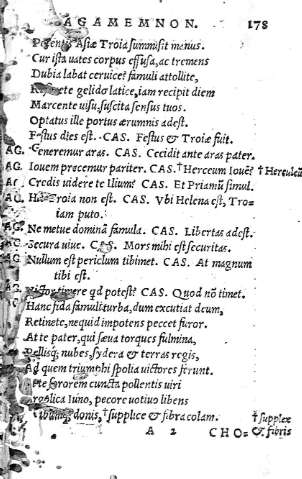 AGAMEMNON. 178
Asiæ Troia summisit manus.
Cur ista uates corpus effusa, ac tremens
Dubia labat ceruice? famuli attollite,
gelido latice, iam recipit diem
Marcente uisu, suscita sensus tuos.
Optatus ille portus ærumnis adest.
Festus dies est. CAS. Festus & Troiæ fuit.
AG. Veneremur aras. CAS. Cecidit ante aras pater.
AG. Iouem precemur pariter. CAS. †Herceum Iouẽ? †Herculeũ
AG. Credis uidere te Ilium? CAS. Et Priamũ simul.
AG. Troia non est. CAS. Vbi Helena est, Tro=
iam puto.
AG. Ne metue dominã famula. CAS. Libertas adest.
AG. Secura uiue. CAS. Mors mihi est securitas.
AG. Nullum est periclum tibimet. CAS. At magnum
tibi est.
AG. timere qd potest? CAS. Quod nõ timet.
Hanc fida famuli turba, dum excutiat deum,
Retinete, nequid impotens peccet furor.
At te pater, qui sæua torques fulmina,
Pellisq; nubes, sydera & terras regis,
Ad quem triumphi spolia uictores ferunt.
Et te sororem cuncta pollentis uiri
Argolica Iuno, pecore uotiuo libens
donis, †supplice & fibra colam. †supplex
A 2 CHO= & fibris